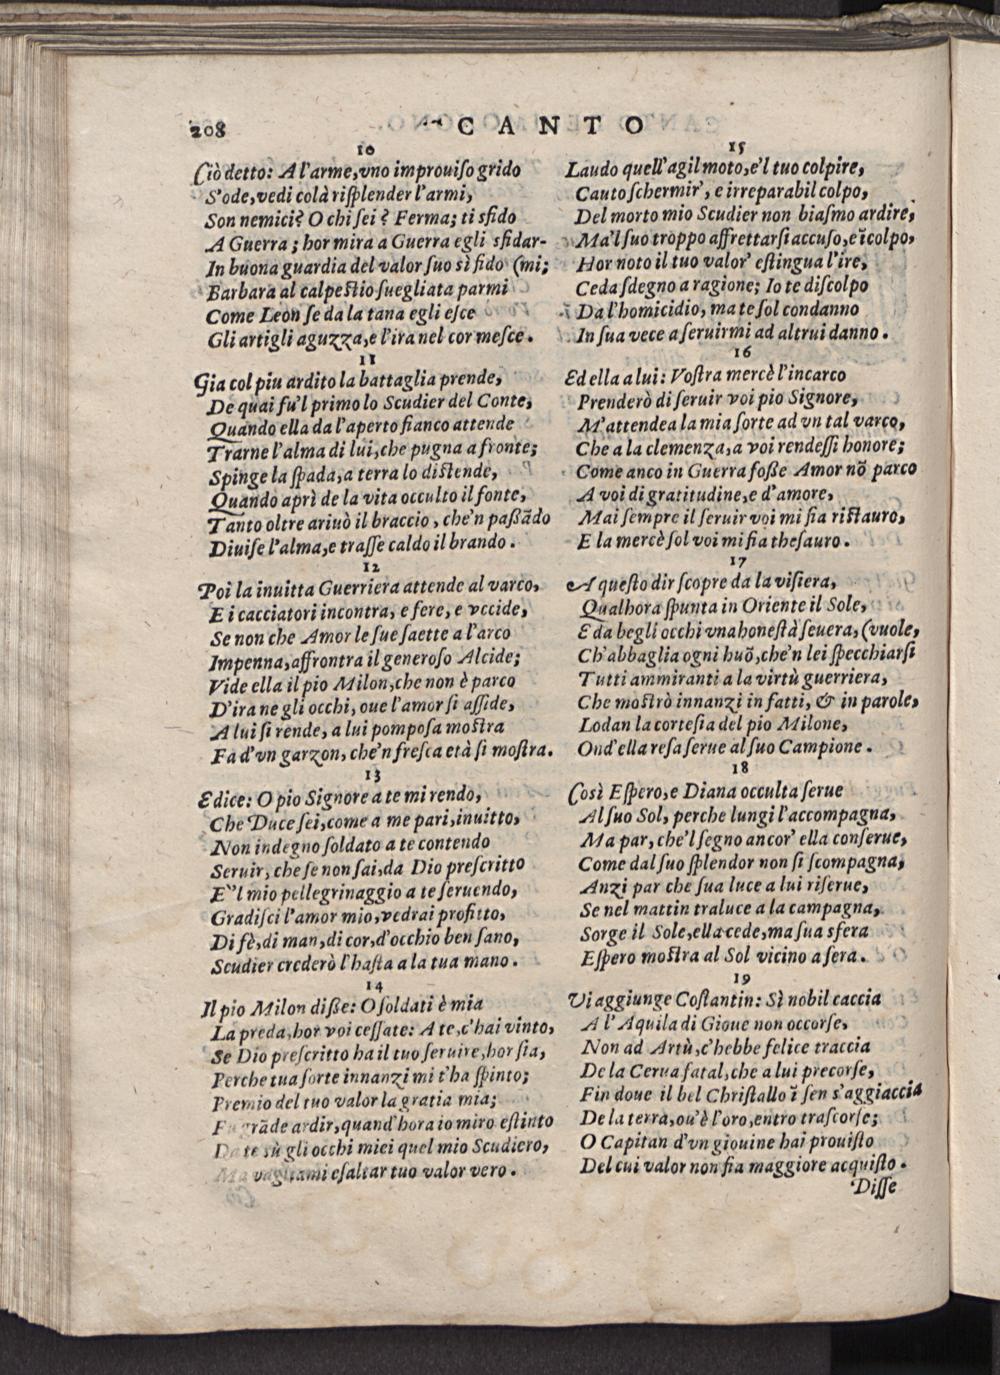 208
CANTO
10
Ciò detto: A l'arme, vno improuiſo grido
S'ode, vedi colà riſplender l'armi,
Son nemici? O chi ſei? Ferma; ti sfido
A Guerra; hor mira a Guerra egli sfidar-
In buona guardia del valor ſuo sì fido (mi;
Barbara al calpeſtio ſuegliata parmi
Come Leon ſe da la tana egli eſce
Gli artigli aguzza, e l'ira nel cor meſce.
11
Gia col piu ardito la battaglia prende,
De quai fu'l primo lo Scudier del Conte,
Quando ella da l'aperto fianco attende
Trarne l'alma di lui, che pugna a fronte;
Spinge la ſpada, a terra lo diſtende,
Quando aprì de la vita occulto il fonte,
Tanto oltre ariuò il braccio, che'n paßãdo
Diuiſe l'alma, e traſſe caldo il brando.
12
Poi la inuitta Guerriera attende al varco,
E i cacciatori incontra, e fere, e vccide,
Se non che Amor le ſue ſaette a l'arco
Impenna, affrontra il generoſo Alcide;
Vide ella il pio Milon, che non è parco
D'ira ne gli occhi, oue l'amor ſi aſſide,
A lui ſi rende, a lui pompoſa moſtra
Fa d'vn garzon, che'n freſca età ſi moſtra.
13
E dice: O pio Signore a te mi rendo,
Che Duce ſei, come a me pari, inuitto,
Non indegno ſoldato a te contendo
Seruir, che ſe non ſai, da Dio preſcritto
E''l mio pellegrinaggio a te ſeruendo,
Gradiſci l'amor mio, vedrai profitto,
Di fè, di man, di cor, d'occhio ben ſano,
Scudier crederò l'haſta a la tua mano.
14
Il pio Milon diße: O ſoldati è mia
La preda, hor voi ceſſate: A te, c'hai vinto,
Se Dio preſcritto ha il tuo ſeruire, hor ſia,
Perche tua ſorte innanzi mi t'ha ſpinto;
Premio del tuo valor la gratia mia;
Fu grãde ardir, quand'hora io miro eſtinto
Da te sù gli occhi miei quel mio Scudiero,
Ma vagliami eſaltar tuo valor vero.
15
Laudo quell'agil moto, e'l tuo colpire,
Cauto ſchermir', e irreparabil colpo,
Del morto mio Scudier non biaſmo ardire,
Ma'l ſuo troppo affrettarſi accuſo, e ĩcolpo,
Hor noto il tuo valor' eſtingua l'ire,
Ceda ſdegno a ragione; Io te diſcolpo
Da l'homicidio, ma te ſol condanno
In ſua vece a ſeruirmi ad altrui danno.
16
Ed ella a lui: Voſtra mercè l'incarco
Prenderò di ſeruir voi pio Signore,
M'attendea la mia ſorte ad vn tal varco,
Che a la clemenza, a voi rendeſſi honore;
Come anco in Guerra foße Amor nõ parco
A voi di gratitudine, e d'amore,
Mai ſempre il ſeruir voi mi ſia riſtauro,
E la mercè ſol voi mi ſia theſauro.
17
A queſto dir ſcopre da la viſiera,
Qualhora ſpunta in Oriente il Sole,
E da begli occhi vna honeſtà ſeuera, (vuole,
Ch'abbaglia ogni huõ, che'n lei ſpecchiarſi
Tutti ammiranti a la virtù guerriera,
Che moſtrò innanzi in fatti, & in parole,
Lodan la corteſia del pio Milone,
Ond'ella reſa ſerue al ſuo Campione.
18
Così Eſpero, e Diana occulta ſerue
Al ſuo Sol, perche lungi l'accompagna,
Ma par, che'l ſegno ancor' ella conſerue,
Come dal ſuo ſplendor non ſi ſcompagna,
Anzi par che ſua luce a lui riſerue,
Se nel mattin traluce a la campagna,
Sorge il Sole, ella cede, ma ſua sfera
Eſpero moſtra al Sol vicino a ſera.
19
Vi aggiunge Coſtantin: Sì nobil caccia
A l'Aquila di Gioue non occorſe,
Non ad Artù, c'hebbe felice traccia
De la Cerua fatal, che a lui precorſe,
Fin doue il bel Chriſtallo ĩ ſen s'aggiaccia
De la terra, ou'è l'oro, entro traſcorſe;
O Capitan d'vn giouine hai prouiſto
Del cui valor non fia maggiore acquiſto.
Diſſe